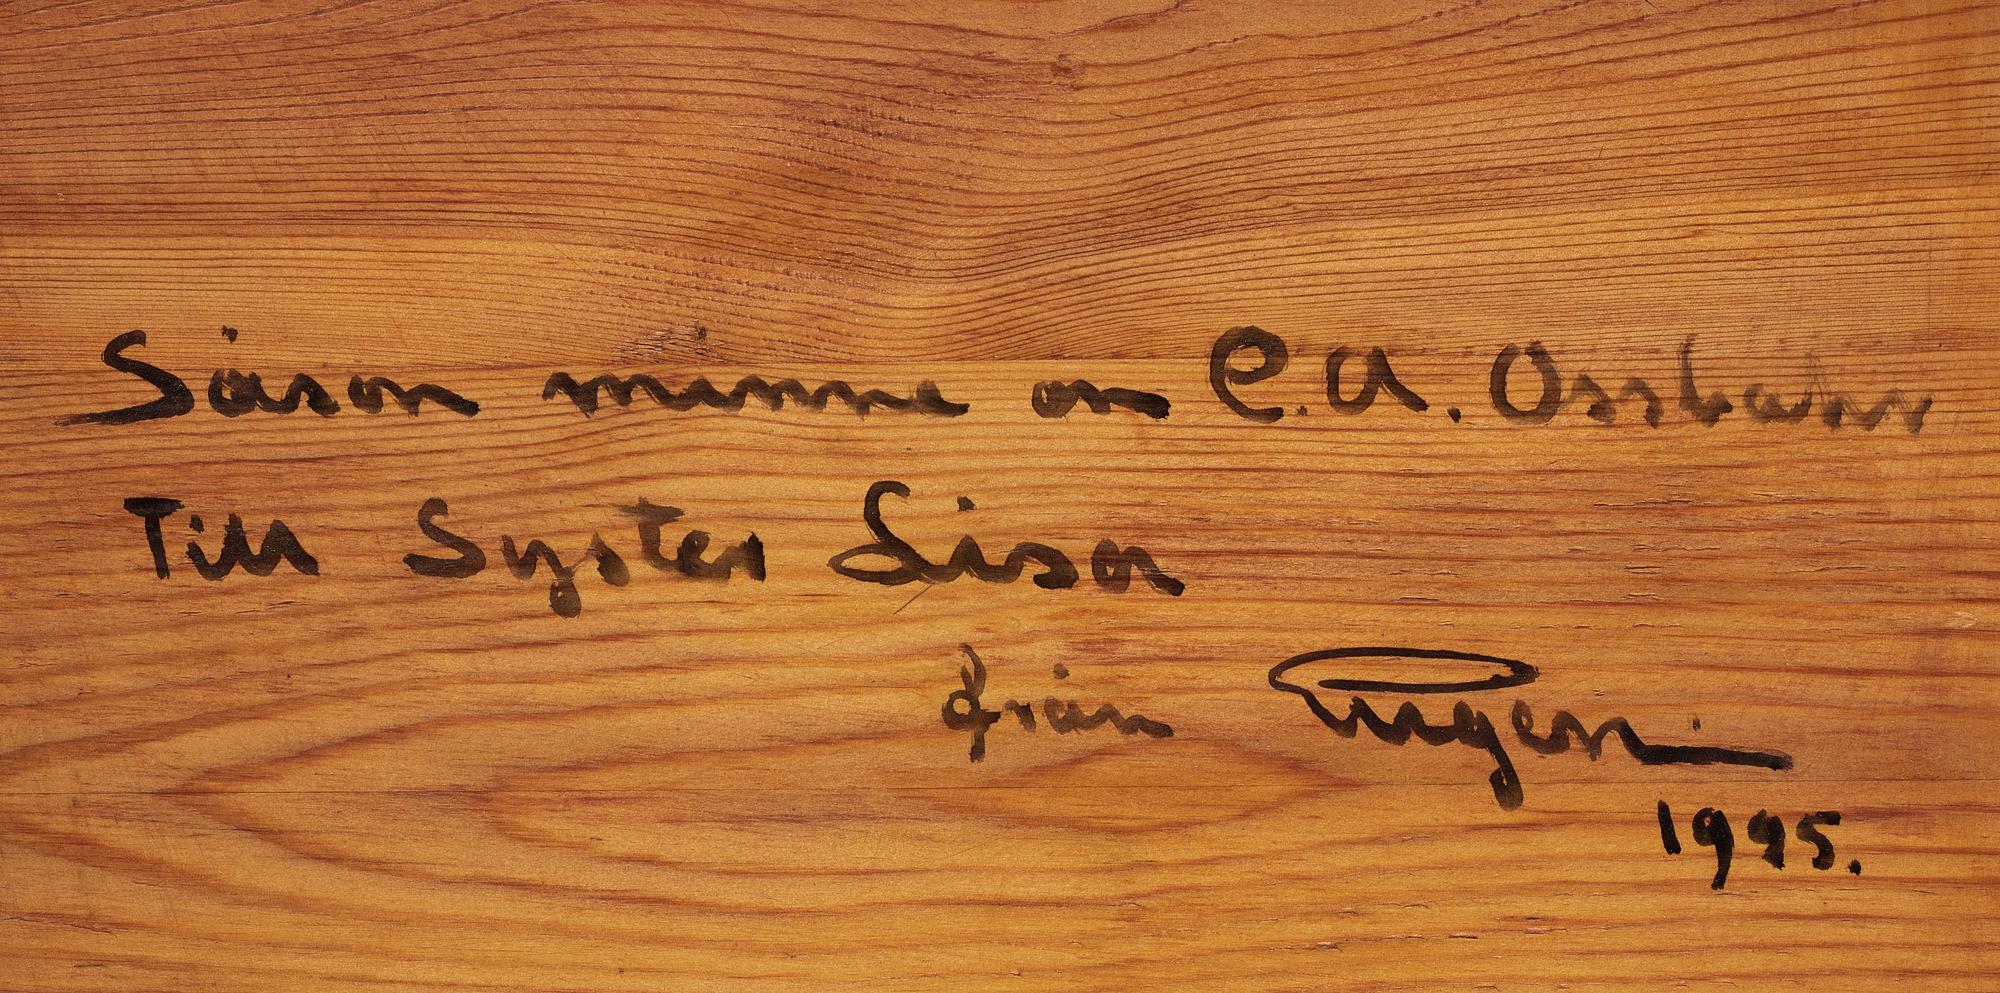 Såsom minne om C.A. Ossbahr
Till Syster Lison
från Eugen.
1945.